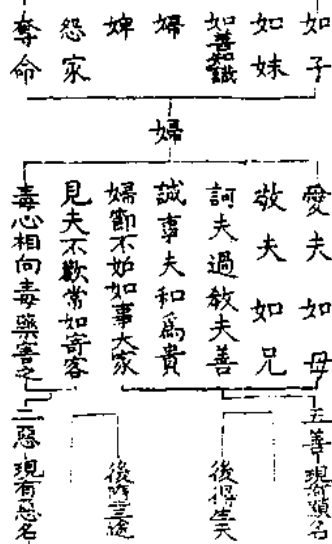 如子
如妹
如善知識
婦
婢
怨家
奪命
婦
愛夫如母
敬夫如兄
訶夫過教夫善
誠事夫和為貴
婦節不妒如事大家
見夫不歡常如寄客
毒心相向毒藥害之
五善
現有顯名
後得生天
二惡
現有惡名
後墮三途